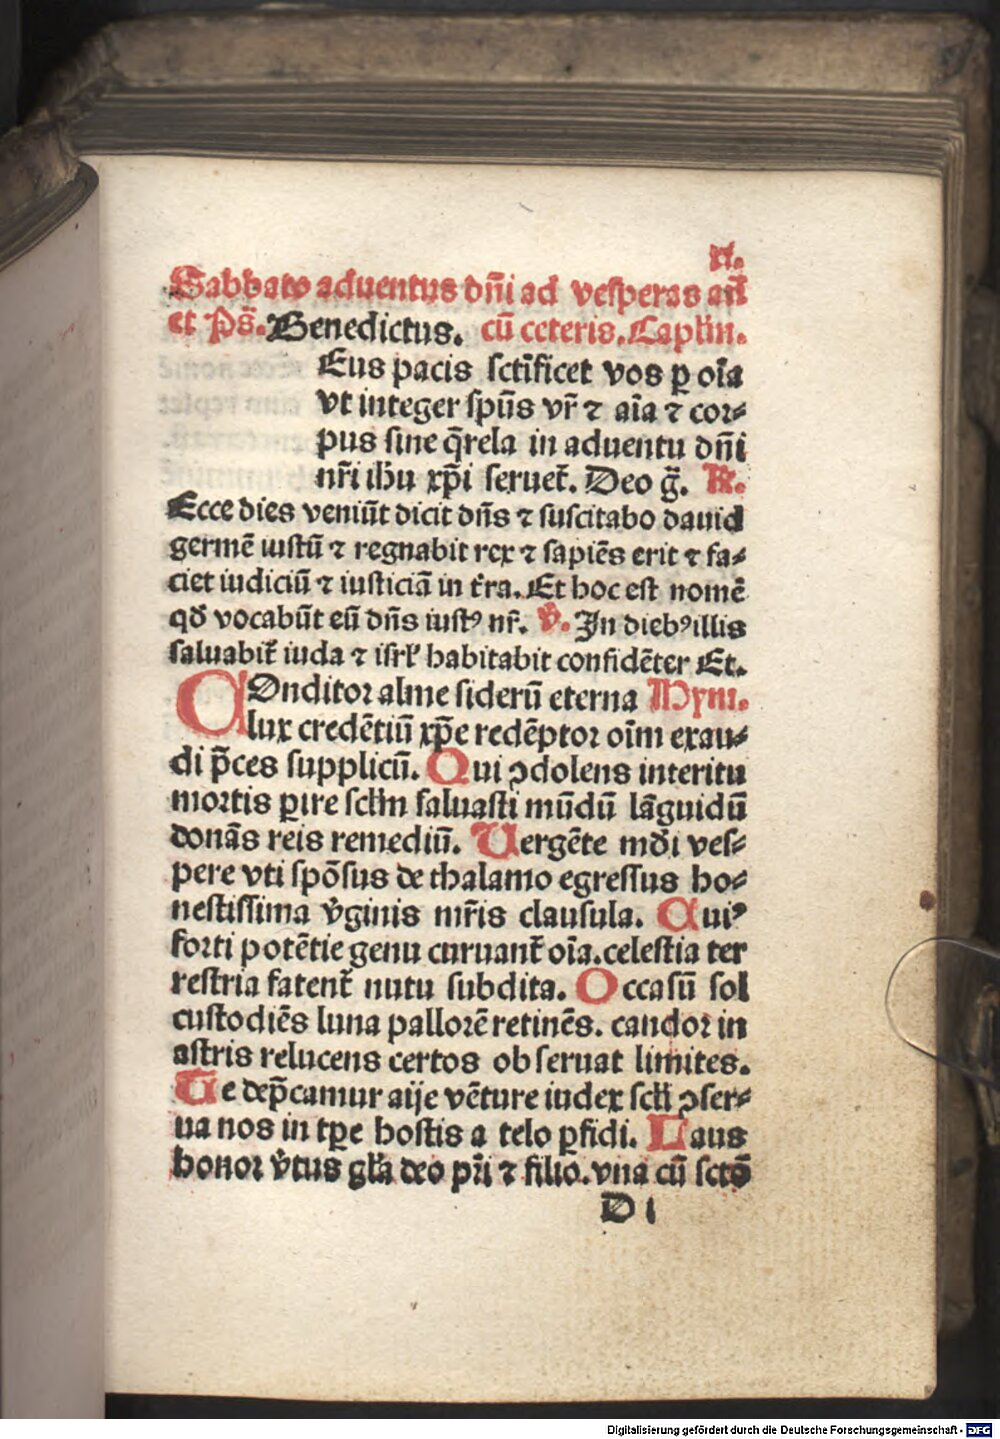 Sabbato aduentus dñi ad vesperas añ
et Ps̄. Benedictus. cū ceteris. Caplm̄.
Eus pacis sctīficet vos ꝑ oīa
vt integer spūs vr̄ ⁊ aīa ⁊ cor⸗
pus sine q̄rela in aduentu dñi
nr̄i ihū xp̄i seruet᷑. Deo g̅. R̸.
Ecce dies veniūt dicit dñs ⁊ suscitabo dauid
germē iustū ⁊ regnabit rex ⁊ sapiēs erit ⁊ fa⸗
ciet iudiciū ⁊ iusticiā in t̄ra. Et hoc est nomē
qd̄ vocabūt eū dñs iustꝰ nr̄. V̸. In diebꝰ illis
saluabit᷑ iuda ⁊ isrl̄ habitabit confidēter Et.
COnditor alme siderū eterna Hym.
lux credētiū xp̄e redēptor oīm exau⸗
di p̄ces supplicū. Qui ꝯdolens interitu
mortis ꝑire sclm̄ saluasti mūdū lāguidū
donās reis remediū. Uergēte md̄i ves⸗
pere vti spōsus de thalamo egressus ho⸗
nestissima v̄ginis mr̄is clausula. Cuiꝰ
forti potētie genu curuant᷑ oīa. celestia ter
restria fatent᷑ nutu subdita. Occasū sol
custodiēs luna pallorē retinēs. candor in
astris relucens certos obseruat limites.
Te dep̄camur aije vēture iudex scl̄i ꝯser⸗
ua nos in tꝑe hostis a telo ꝑfidi. Laus
honor v̄tus gl̄a deo pr̄i ⁊ filio. vna cū sctō
D i
Digitalisierung gefördert durch die Deutsche Forschungsgemeinschaft - DFG